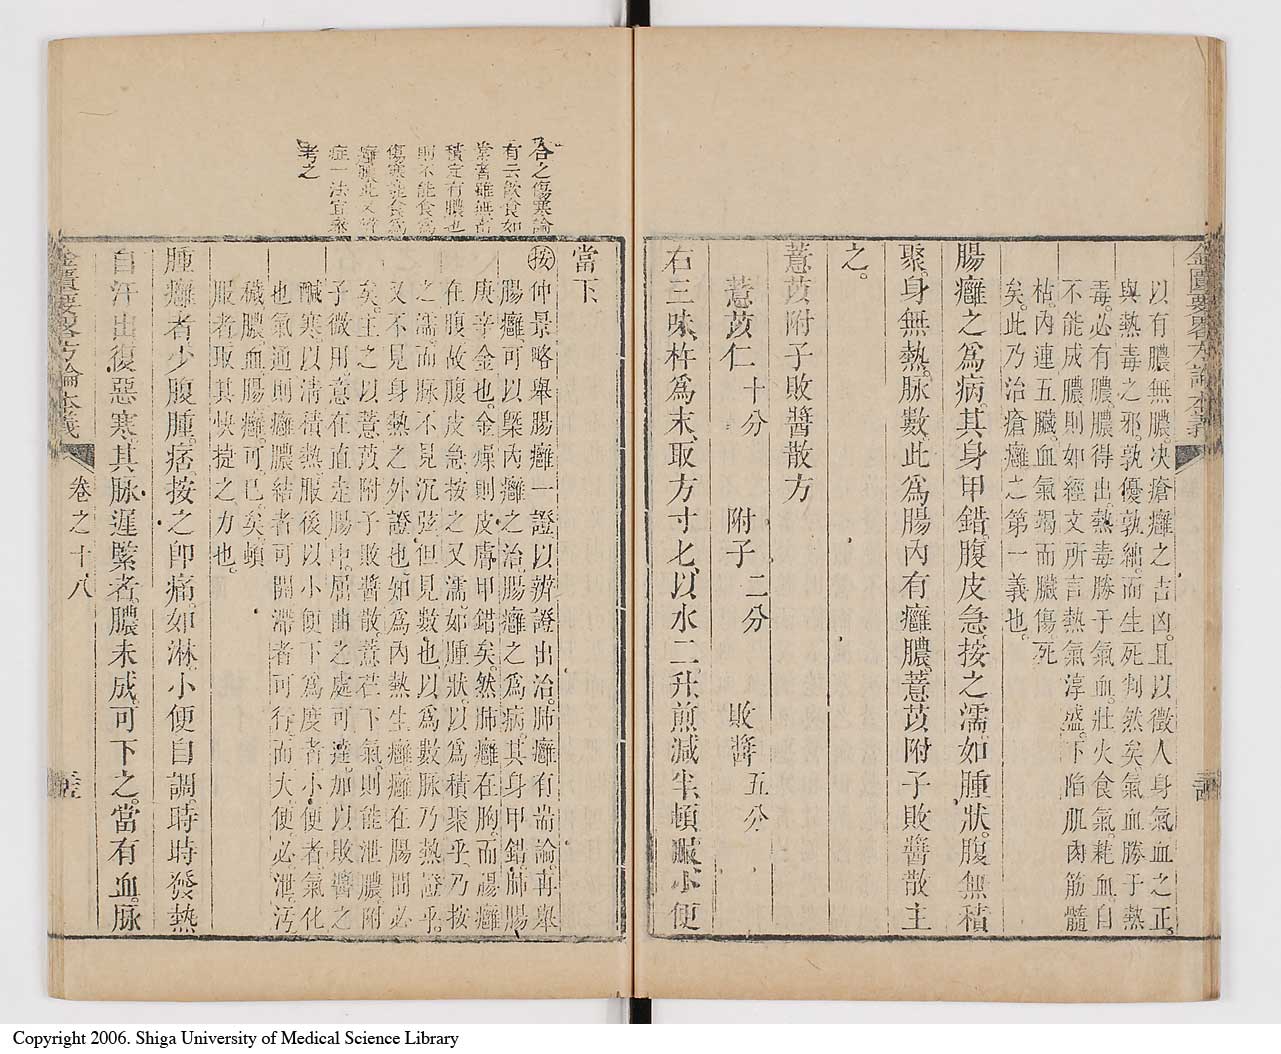 金匱要略方論本義
以有膿無膿。决瘡癰之吉凶。且以徵人身氣血之正。
與熱毒之邪。孰優孰絀。而生死判然矣。氣血勝于熱
毒。必有膿。膿得出熱毒勝于氣血。壯火食氣。耗血。自
不能成膿。則如經文所言熱氣淳盛。下陷肌肉筋髓
枯。內連五臟。血氣竭而臟傷死
矣。此乃治瘡癰之第一義也。
腸癰之爲病。其身甲錯。腹皮急。按之濡。如腫狀。腹無積
聚。身無熱。脉數。此爲腸內有癰膿。薏苡附子敗醬散主
之。
薏苡附子敗醬散方
薏苡仁 十分 附子 二分 敗醬 五分
右三味。杵爲末。取方寸匕。以水二升。煎減半。頓服。小便
當下
谷之傷寒論
有云飲食如
常者雖無
積定有膿也
則不能食爲
傷寒能食爲
癰膿此又辨
症一法宜參
考之
按仲景略舉腸癰一證以辨證出治。肺癰有耑論。再舉
腸癰。可以槩內癰之治。腸癰之爲病。其身甲錯。肺腸
庚辛金也。金燥則皮膚甲錯矣。然肺癰在胸。而腸癰
在腹。故腹皮急。按之又濡。如腫狀。以爲積聚乎。乃按
之濡而脈不見沉弦。但見數也。以爲數脉乃熱證乎。
又不見身熱之外證也。知爲內熱生癰。癰在腸間必
矣。主之以薏苡附子敗醬散。薏苡下氣。則能泄膿。附
子微用。意在直走腸中。屈曲之處可達。加以敗醬之
醎寒。以清積熱。服後以小便下爲度者。小便者。氣化
也。氣通則癰膿結者可開。滯者可行。而大便必泄汚
穢膿血。腸癰可已矣。頓
服者。取其快捷之力也。
腫癰者。少腹腫。痞。按之卽痛。如淋。小便自調。時時發熱
自汗出。復惡寒。其脉遲緊者。膿未成。可下之。當有血。脉
金匱要畧方論本義 卷之十八